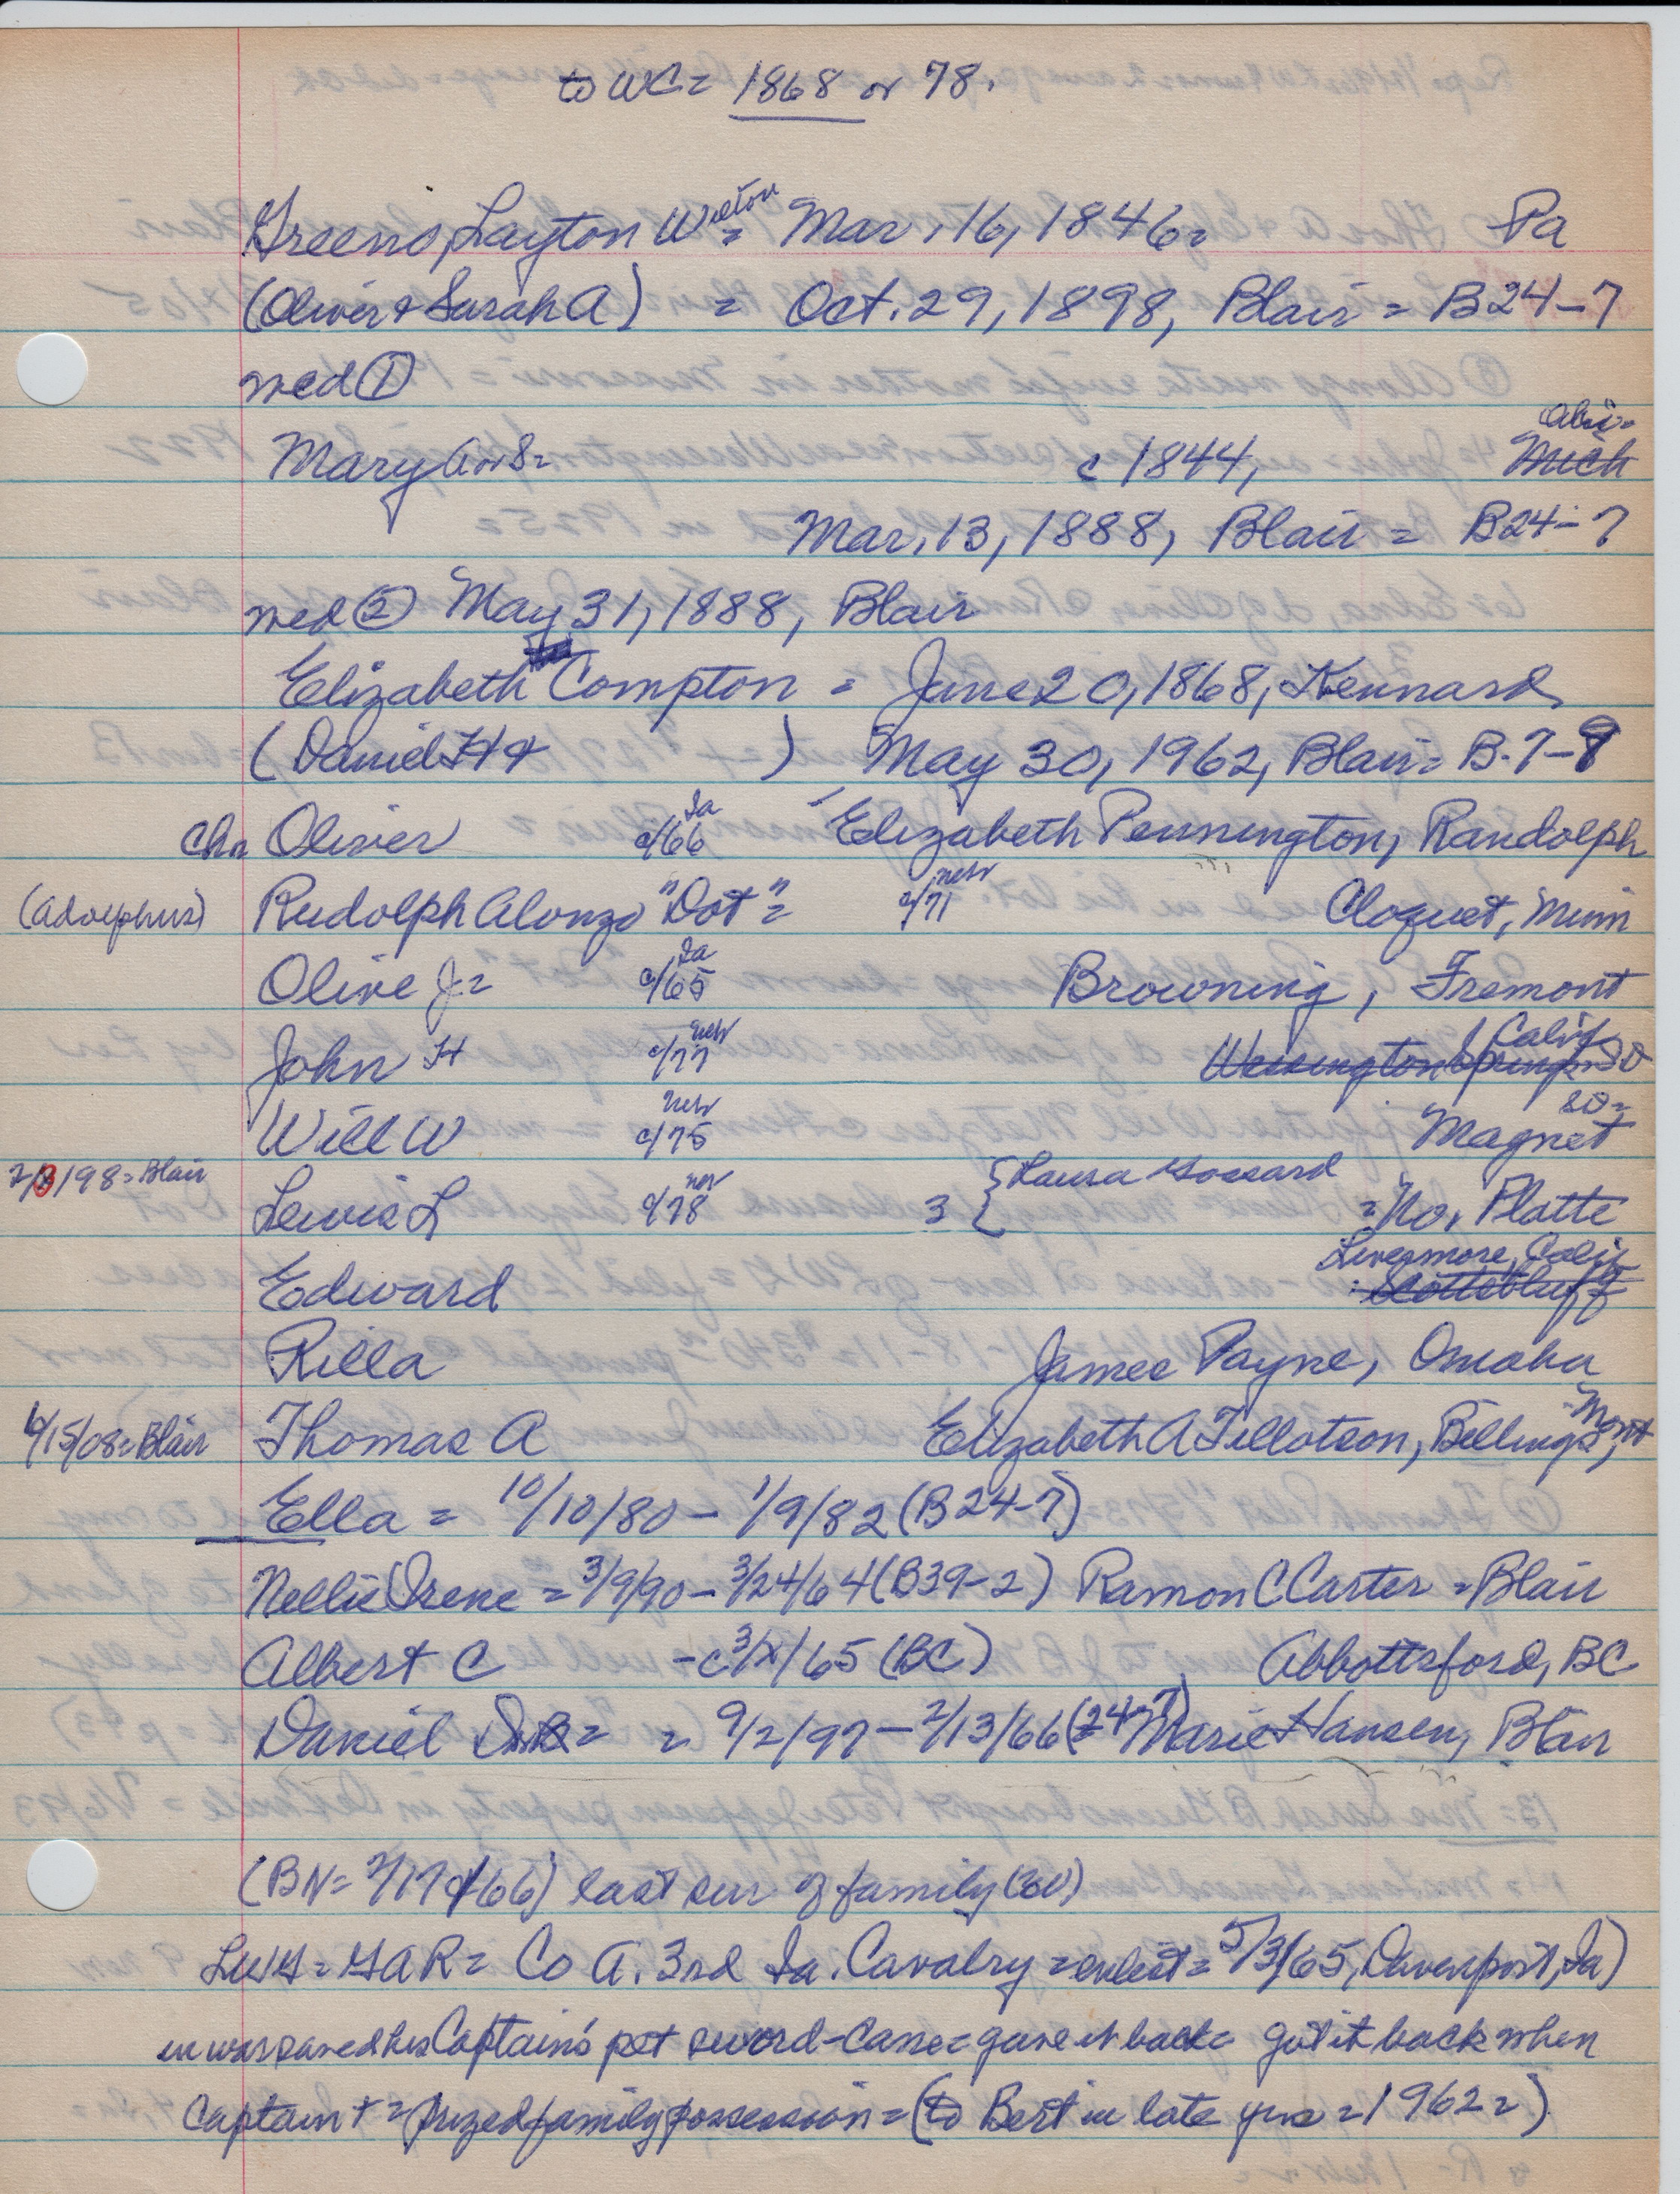 to WC = 1868 or 78.
Greeno, Layton Wilton = Mar. 16, 1846 = Pa
(Oliver + Sarah A) = Oct. 29, 1898, Blair = B24-7
med ①
Mary A or S = c 1844, Mich Ohio =
Mar. 13, 1888, Blair = B24-7
med ② May 31, 1888, Blair
Elizabeth Compton = June 20, 1868, Kennard
(Daniel H + ) May 30, 1962, Blair = B.7-9
Chn Oliver c/66 Ia Elizabeth Pennington, Randolph
(Adolphus) Rudolph Alonzo "Dot" = c/71 nebr Cloquet, Minn
Olive J = c/65 Ia Browning, Fremont
John H c/77 nebr Wessington Springs SD Calif
Will W c/75 nebr Magnet
2/8/98 = Blair Lewis L c/78 nebr 3 { Laura Gossard = No. Platte
Edward Scottsbluff Livermore, Calif
Rilla James Payne, Omaha
6/15/08 = Blair Thomas A Elizabeth A Tillotson, Billings, Mont
Ella = 10/10/80 - 1/9/82 (B24-7)
Nellie Irene = 3/9/90 - 3/24/64 (B39-2) Ramon C Carter = Blair
Albert C - c 3/x/65 (BC) Abbottsford, BC
Daniel = 9/2/97 - 2/13/66 (= 24-7) Marie Hansen, Blair
(BN = 2/17/66) last sur of family
LWG = GAR = Co A. 3rd Ia. Cavalry = enlist = 5/3/65, Davenport, Ia)
in war saved his Captain's pet sword-cane = gave it back = got it back when
Captain + = prized family possession = (to Bert in late yrs = 1962 =)